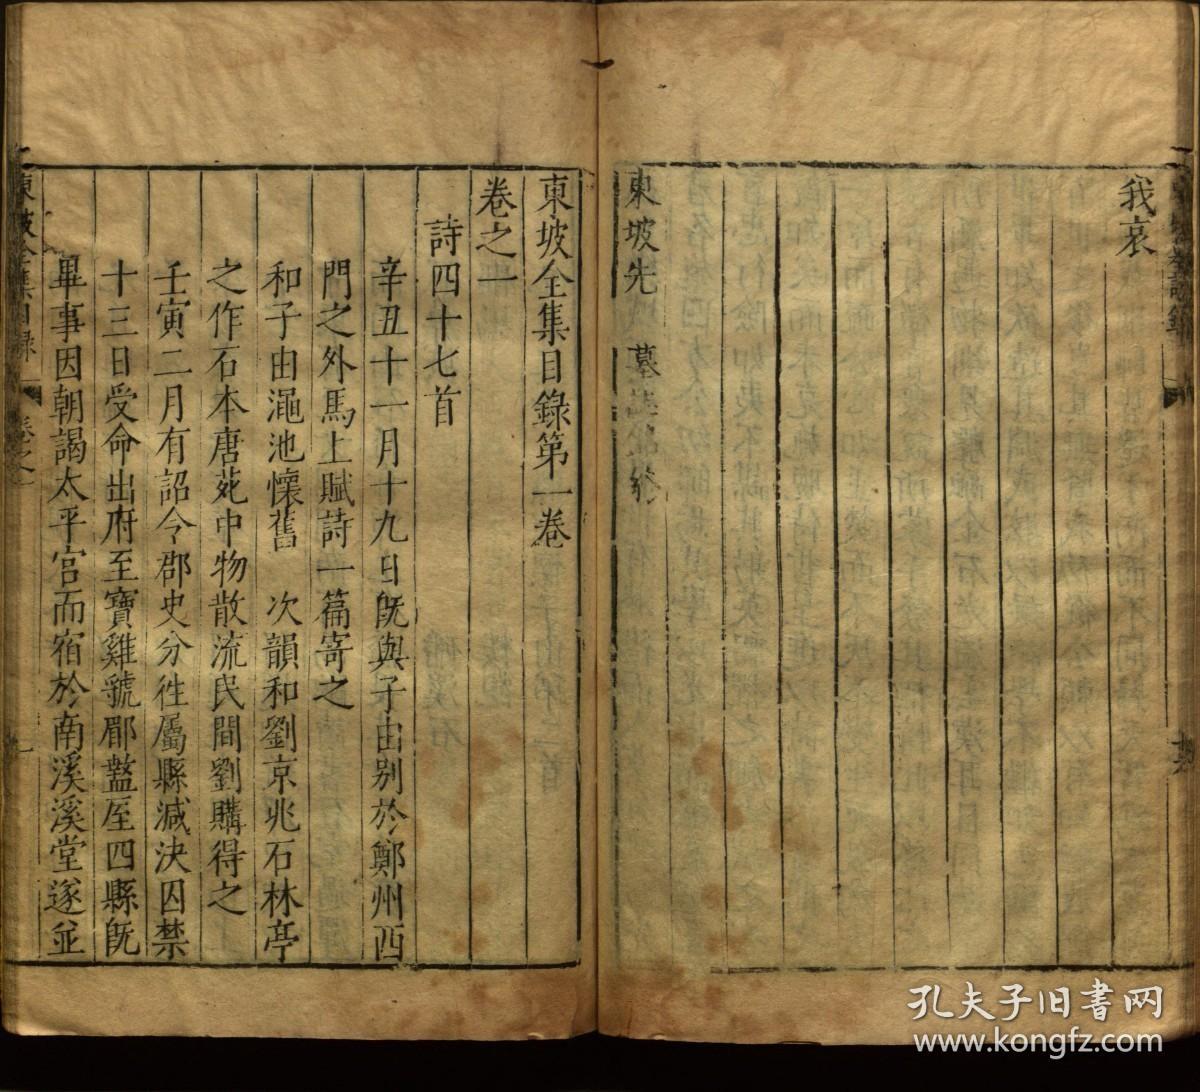 我哀
東坡先 墓誌銘終
東坡全集目錄第一卷
卷之一
詩四十七首
辛丑十一月十九日旣與子由別於鄭州西
門之外馬上賦詩一篇寄之
和子由澠池懷舊 次韻和劉京兆石林亭
之作石本唐苑中物散流民間劉購得之
壬寅二月有詔令郡吏分徃屬縣減決囚禁
十三日受命出府至寶雞虢郿盩厔四縣旣
畢事因朝謁太平宮而宿於南溪溪堂遂並
東坡全集目錄
卷之一
一
孔夫子旧书网
www.kongfz.com